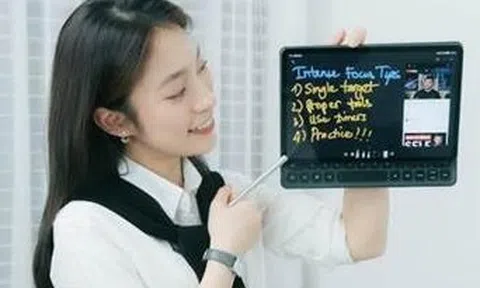 Intense Focus Tips
1) Single target
2) Proper tools
3) Use timers
4) Practice!!!